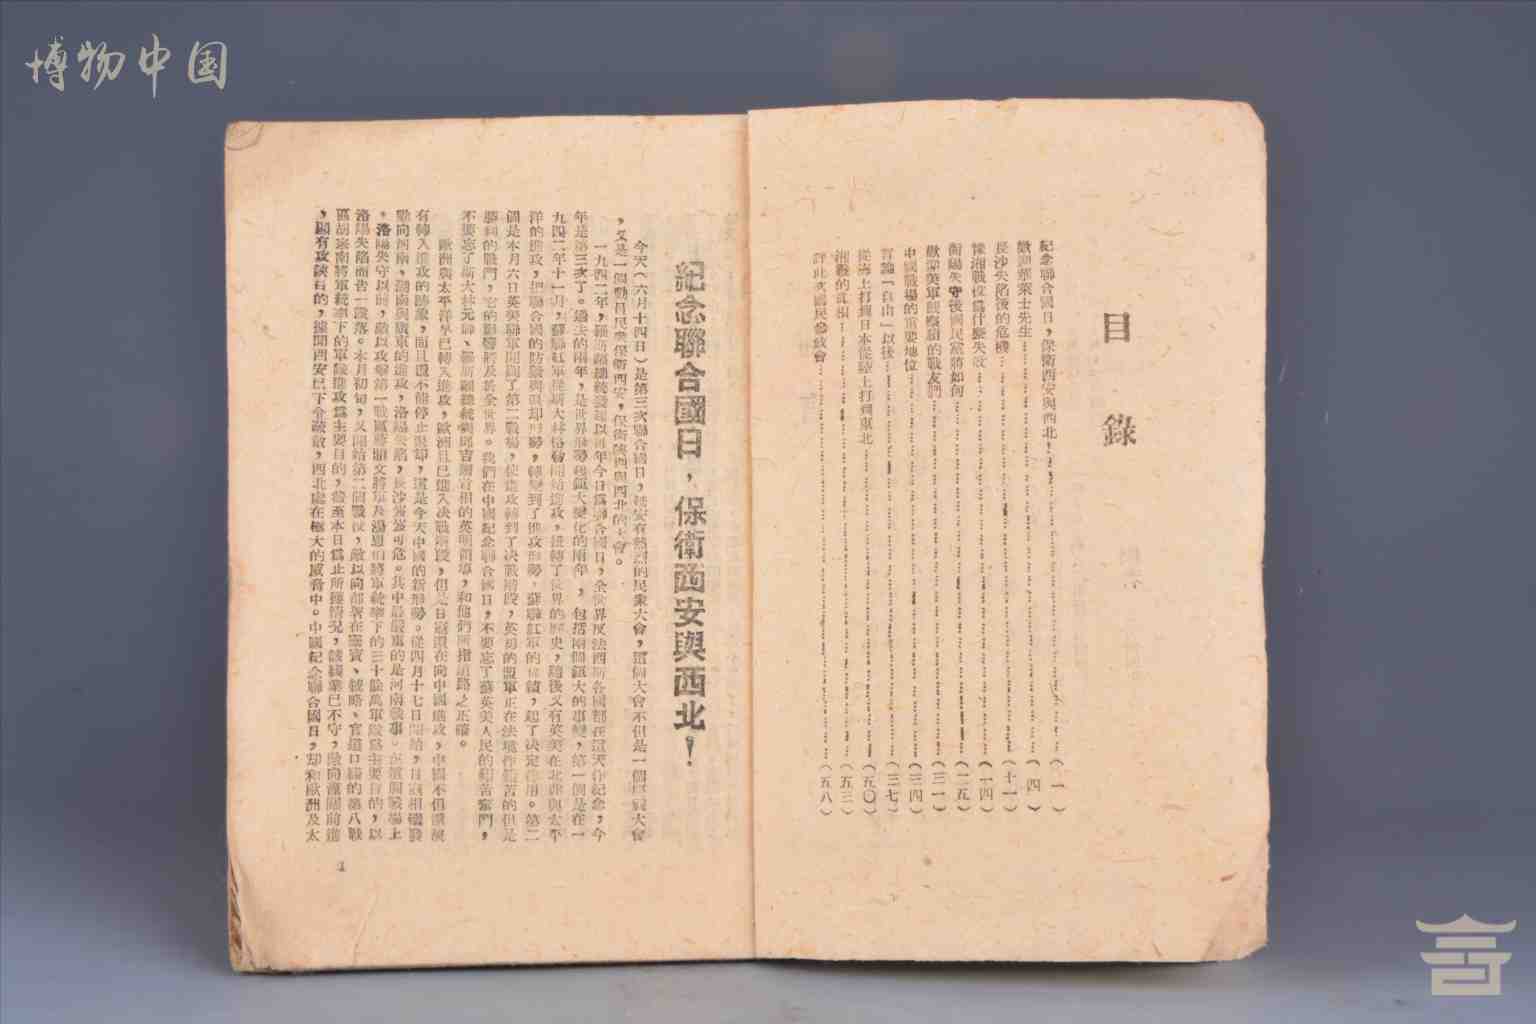 博物中国
目錄
紀念聯合國日，保衛西安與西北！……（一）
歡迎華萊士先生……（四）
長沙失陷後的危機……（十一）
豫湘戰役爲什麼失敗……（一四）
衡陽失守後國民黨將如何……（二五）
歡迎美軍觀察組的戰友們……（三一）
中國戰場的重要地位……（三四）
言論「自由」以後……（三七）
從海上打到日本從陸上打到東北……（五〇）
湘戰的真相……（五三）
評此次國民參政會……（五八）
紀念聯合國日，保衛西安與西北！
今天（六月十四日）是第三次聯合國日，延安有熱烈的民衆大會，這個大會不但是一個慶祝大會
，又是一個動員民衆保衛西安，保衛陝西與西北的大會。
一九四二年，羅斯福總統發起以每年今日爲聯合國日，全世界反法西斯各國都在這天作紀念，今
年是第三次了。過去的兩年，是世界形勢起鉅大變化的兩年，包括兩個鉅大的事變，第一個是在一
九四二年十一月，蘇聯紅軍從斯大林格勒開始進攻，扭轉了世界的歷史，隨後又有英美在北非與太平
洋的進攻，把聯合國的防禦與退却形勢，轉變到了進攻形勢，蘇聯紅軍的成績，起了決定作用。第二
個是本月六日英美聯軍開闢了第二戰場，使進攻轉到了決戰階段，英勇的盟軍正在法境作艱苦的但是
勝利的戰鬥，它的影響將及於全世界。我們在中國紀念聯合國日，不要忘了蘇英美人民的艱苦奮鬥，
不要忘了斯大林元帥、羅斯福總統與邱吉爾首相的英明領導，和他們所指道路之正確。
歐洲與太平洋早已轉入進攻，歐洲且已進入決戰階段，但是日寇還在向中國進攻，中國不但還沒
有轉入進攻的跡象，而且還不能停止退却，這是今天中國的新形勢。從四月十七日開始，日寇相繼發
動向河南、湖南與廣東的進攻，洛陽失陷，長沙岌岌可危。其中最嚴重的是河南戰事。在這個戰場上
，洛陽失守以前，敵以攻擊第一戰區蔣鼎文將軍及湯恩伯將軍統率下的三十餘萬軍隊爲主要目的，以
洛陽失陷而告一段落。本月初旬，又開始第二個戰役，敵以向部署在靈寶、虢略、官道口綫的第八戰
區胡宗南將軍統率下的軍隊進攻爲主要目的，截至本日爲止所獲情況，該綫業已不守，敵向潼關前進
，顯有攻陝目的，據聞西安已下令疏散，西北處在極大的威脅中。中國紀念聯合國日，却和歐洲及太
1